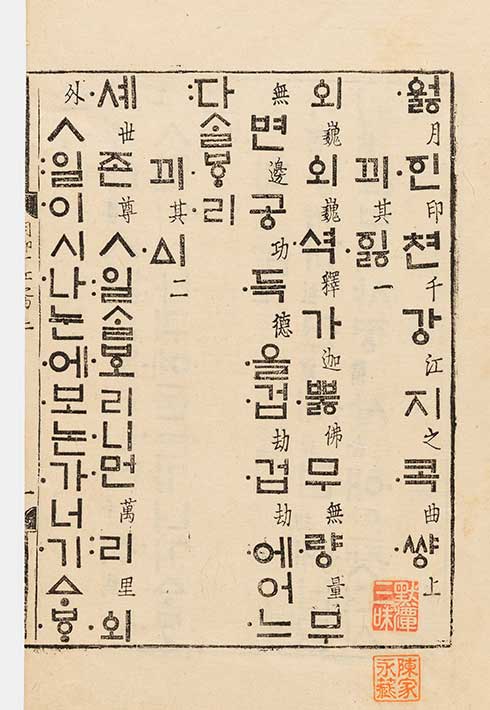 ·ᅌᅯᇙ月·ᅙᅵᆫ印쳔千강江지之·콕曲·썅上
끠其·ᅙᅵᇙ一
외巍외巍·셕釋가迦·뿛佛무無·량量무
無변邊공功·득德·을·겁劫·겁劫·에어·느
:다ᄉᆞᆯᄫᆞ·리
끠其·ᅀᅵ二
·셰世존尊ㅅ:일ᄉᆞᆯ·ᄫᅩ리·니:먼萬:리里·외
外ㅅ:일이시·나·눈·에·보논·가너·기ᅀᆞᄫᆞ
默潭三昧
陳家永藏